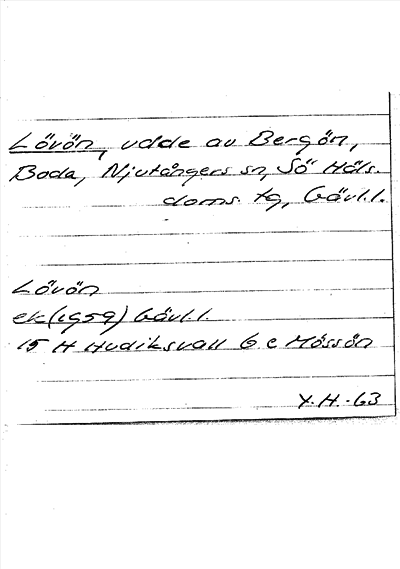 Lövön, udde av Bergön,
Boda, Njutångers sn, Sö Häls.
doms. tg, Gävl.l.
Lövön
ek (1959) Gävl.l.
15 H Hudiksvall 6 e Mössön
Y.H.-63